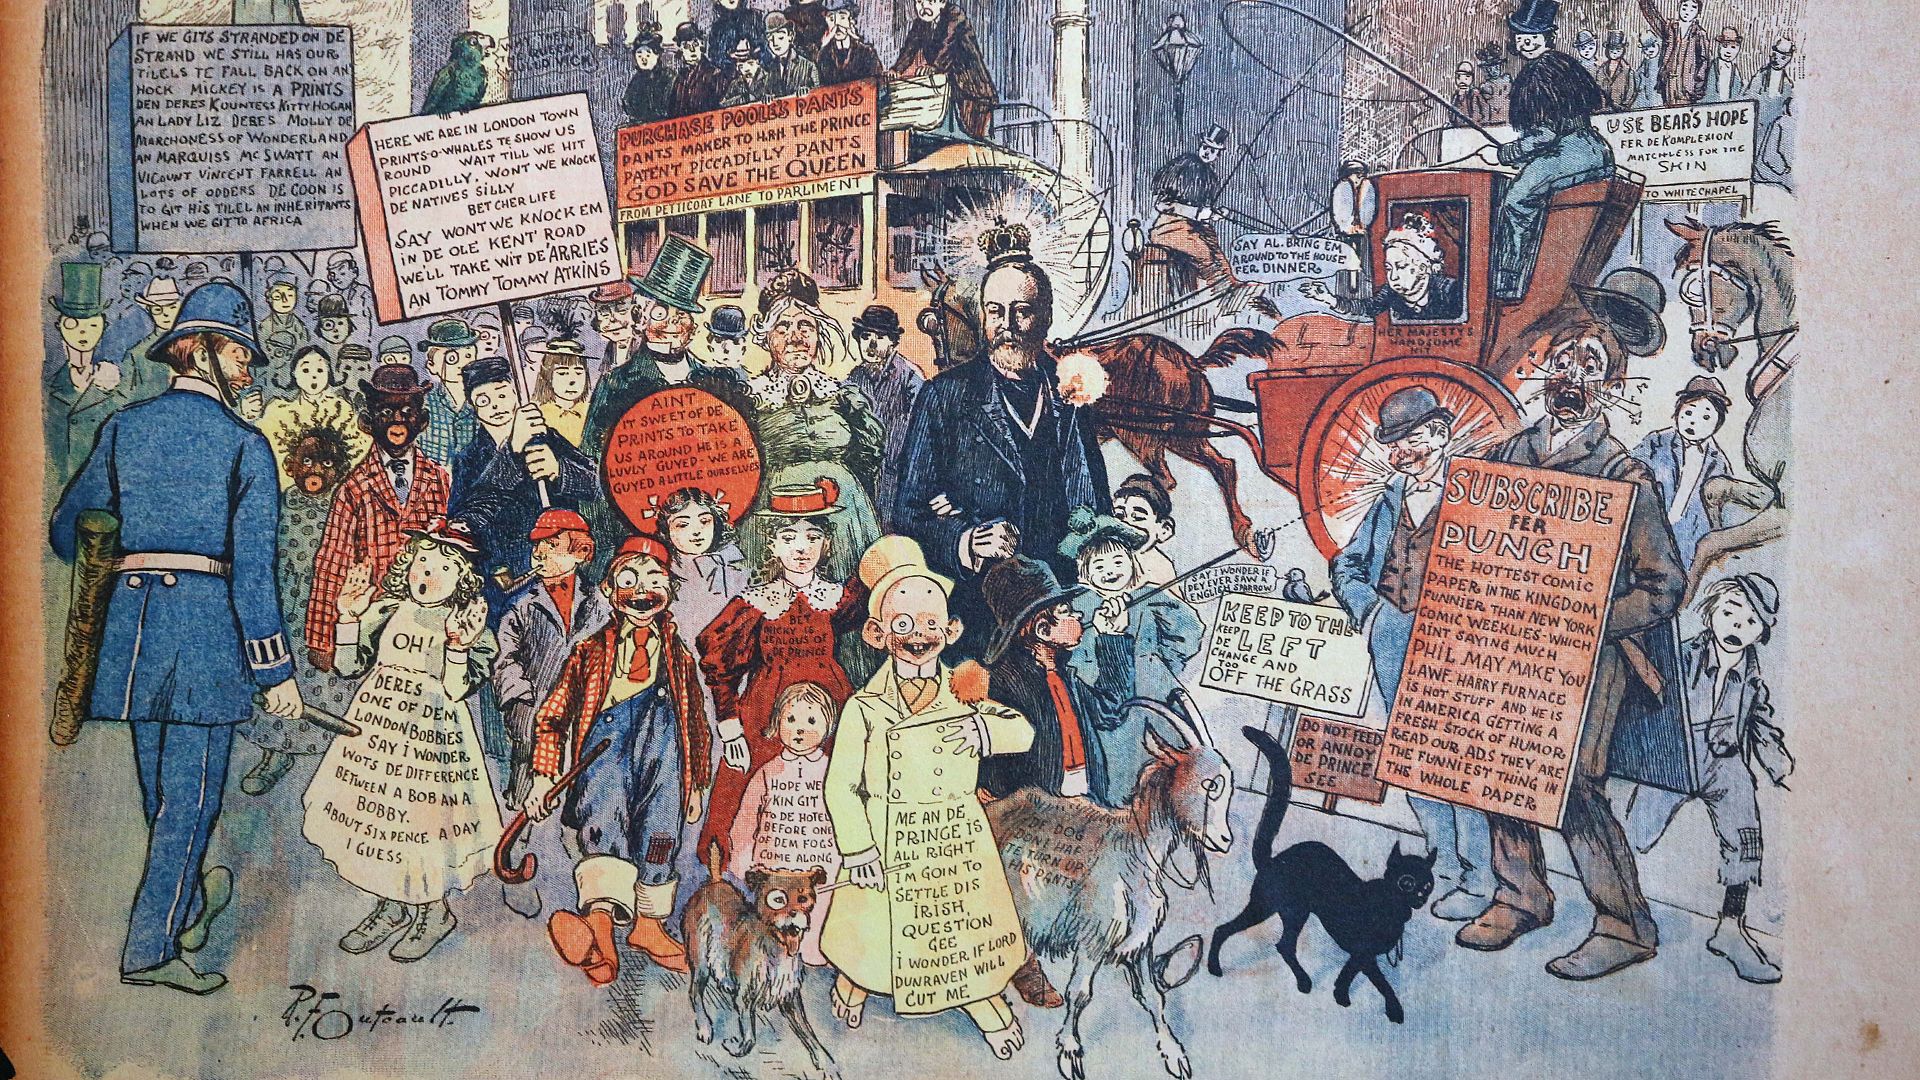 IF WE GITS STRANDED ON DE
STRAND WE STILL HAS OUR
TILELS TE FALL BACK ON AN
HOCK MICKEY IS A PRINTS
DEN DERES KOUNTESS KITTY HOGAN
AN LADY LIZ DERES MOLLY DE
MARCHONESS OF WONDERLAND
AN MARQUISS MC SWATT AN
VICOUNT VINCENT FARRELL AN
LOTS OF ODDERS DE COON IS
TO GIT HIS TILEL AN INHERITANTS
WHEN WE GIT TO AFRICA
HERE WE ARE IN LONDON TOWN
PRINTS-O-WHALES TE SHOW US
ROUND WAIT TILL WE HIT
PICCADILLY, WONT WE KNOCK
DE NATIVES SILLY
BETCHER LIFE
SAY WON'T WE KNOCK EM
IN DE OLE KENT ROAD
WE'LL TAKE WIT DE 'ARRIES
AN TOMMY TOMMY ATKINS
PURCHASE POOLE'S PANTS
PANTS MAKER TO H.R.H. THE PRINCE
PATENT PICCADILLY PANTS
GOD SAVE THE QUEEN
FROM PETTICOAT LANE TO PARLIMENT
USE BEAR'S HOPE
FER DE KOMPLEXION
MATCHLESS FOR THE
SKIN
TO WHITE CHAPEL
SAY AL. BRING EM
AROUND TO THE HOUSE
FER DINNER
HER MAJESTYS
HANDSOME
KIT
AINT
IT SWEET OF DE
PRINTS TO TAKE
US AROUND HE IS A
LUVLY GUYED - WE ARE
GUYED A LITTLE OURSELVES
OH!
DERES
ONE OF DEM
LONDON BOBBIES
SAY I WONDER
WOTS DE DIFFERENCE
BETWEEN A BOB AN A
BOBBY.
ABOUT SIX PENCE A DAY
I GUESS
BET
MICKY IS
JEALOUS OF
DE PRINCE
I
HOPE WE
KIN GIT
TO DE HOTEL
BEFORE ONE
OF DEM FOGS
COME ALONG
ME AN DE
PRINCE IS
ALL RIGHT
I'M GOIN TO
SETTLE DIS
IRISH
QUESTION
GEE
I WONDER IF LORD
DUNRAVEN WILL
CUT ME
DE DOG
DON'T HAF
TE TURN UP
HIS PANTS
SAY I WONDER IF
DEY EVER SAW A
ENGLISH SPARROW
KEEP TO THE
KEEP LEFT
DE
CHANGE AND
TOO
OFF THE GRASS
DO NOT FEED
OR ANNOY
DE PRINCE
SEE
SUBSCRIBE
FER
PUNCH
THE HOTTEST COMIC
PAPER IN THE KINGDOM
FUNNIER THAN NEW YORK
COMIC WEEKLIES - WHICH
AINT SAYING MUCH
PHIL MAY MAKE YOU
LAWF. HARRY FURNACE
IS HOT STUFF AND HE IS
IN AMERICA GETTING A
FRESH STOCK OF HUMOR
READ OUR ADS. THEY ARE
THE FUNNIEST THING IN
THE WHOLE PAPER
R. F. Outcault.